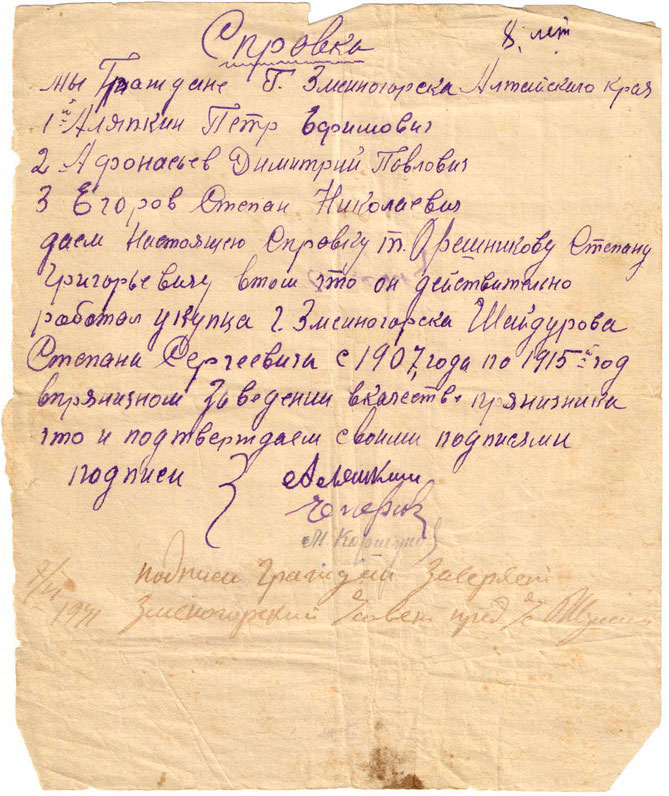 Спровка 8 лет
мы Граждане Г. Змеиногорска Алтайского края
1й Аляпкин Петр Ефимович
2 Афонасьев Димитрий Повлович
3 Егоров Степан Николаевич
даем настоящею Справку т. Орешникову Степану
Григорьевичу втом что он действительно
работал укупца г. Змеиногорска Шайдурова
Степана Сергеевича с 1907, года по 1915й год
впрянизном Заведении вкачестве прянизника
что и подтверждаем своими подписями
подписи
подписи Граждан Заверяет
1941 Змеиногорский Г/совет пред. Г/с